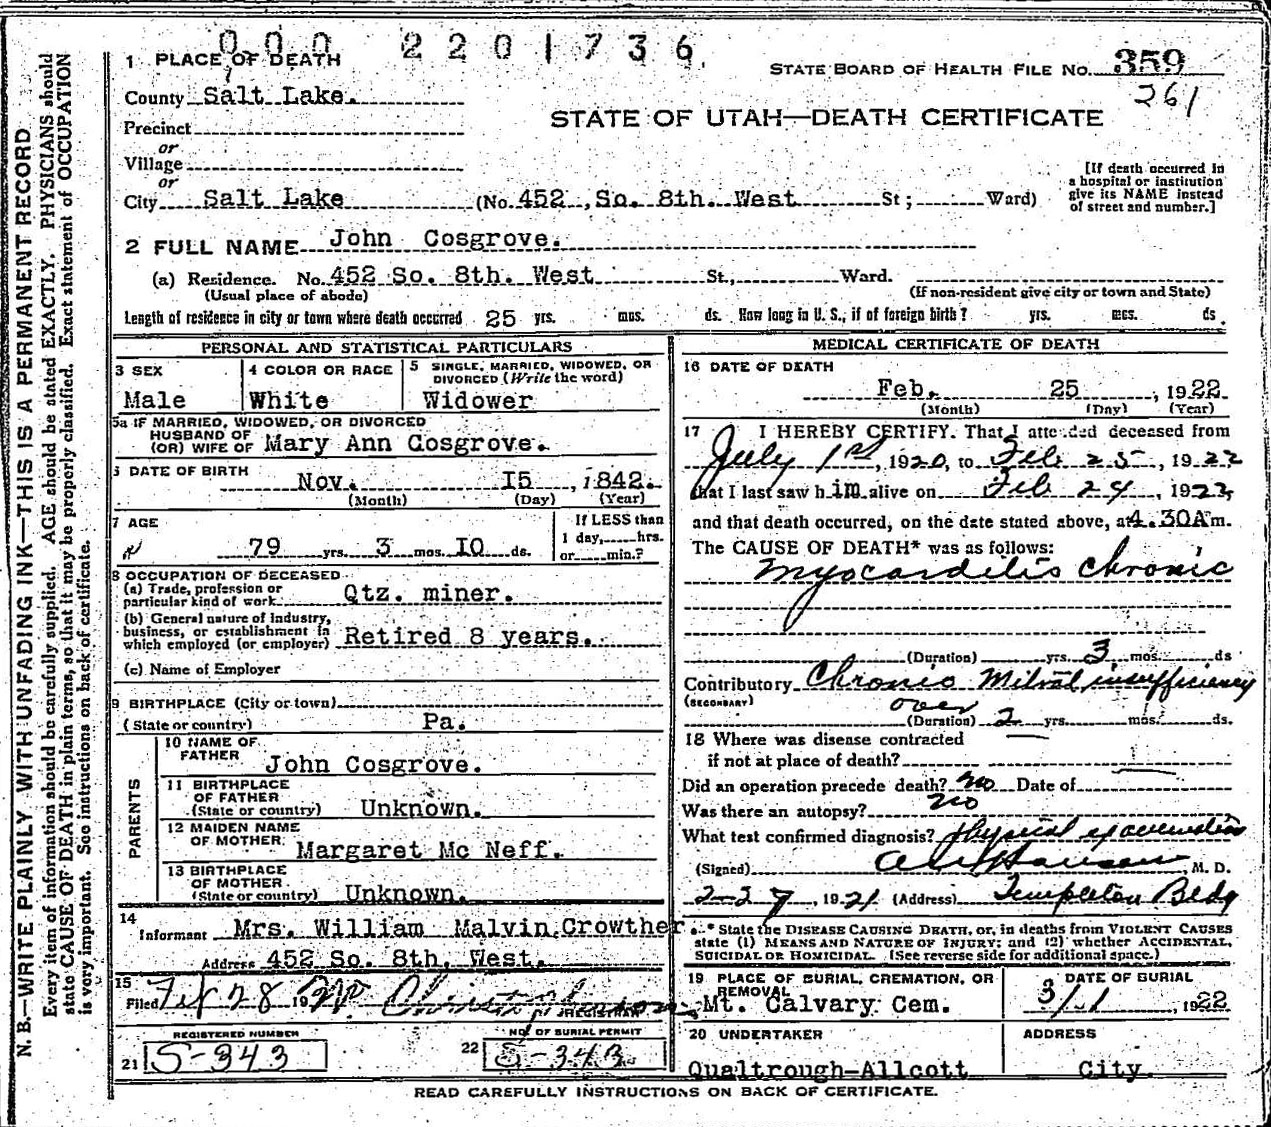 000 2201736
1 PLACE OF DEATH
STATE BOARD OF HEALTH FILE No. 359
261
County Salt Lake.
STATE OF UTAH—DEATH CERTIFICATE
Precinct
or
Village
or
City Salt Lake (No. 452, So. 8th. West St; Ward)
[If death occurred in a hospital or institution give its NAME instead of street and number.]
2 FULL NAME John Cosgrove.
(a) Residence. No. 452 So. 8th. West St., Ward.
(Usual place of abode) (If non-resident give city or town and State)
Length of residence in city or town where death occurred 25 yrs. mos. ds. How long in U. S., if of foreign birth? yrs. mos. ds.
PERSONAL AND STATISTICAL PARTICULARS
3 SEX
Male
4 COLOR OR RACE
White
5 SINGLE, MARRIED, WIDOWED, OR
DIVORCED (Write the word)
Widower
5a IF MARRIED, WIDOWED, OR DIVORCED
HUSBAND OF
(OR) WIFE OF Mary Ann Cosgrove.
6 DATE OF BIRTH
Nov. I5, 1842.
(Month) (Day) (Year)
7 AGE
79 yrs. 3 mos. I0 ds.
If LESS than
1 day, hrs.
or min.?
8 OCCUPATION OF DECEASED
(a) Trade, profession or
particular kind of work Qtz. miner.
(b) General nature of Industry,
business, or establishment in
which employed (or employer) Retired 8 years.
(c) Name of Employer
9 BIRTHPLACE (City or town)
(State or country) Pa.
PARENTS
10 NAME OF
FATHER John Cosgrove.
11 BIRTHPLACE
OF FATHER
(State or country) Unknown.
12 MAIDEN NAME
OF MOTHER Margaret Mc Neff.
13 BIRTHPLACE
OF MOTHER
(State or country) Unknown.
14
Informant Mrs. William Malvin Crowther.
Address 452 So. 8th. West.
15
Filed Feb 28 1922
REGISTRAR
REGISTERED NUMBER
21 S-343
NO. OF BURIAL PERMIT
22 S-343
MEDICAL CERTIFICATE OF DEATH
16 DATE OF DEATH
Feb. 25, 1922
(Month) (Day) (Year)
17 I HEREBY CERTIFY. That I attended deceased from
July 1st, 1920, to Feb 25, 1922
that I last saw him alive on Feb 24, 1922,
and that death occurred, on the date stated above, at 4.30A m.
The CAUSE OF DEATH* was as follows:
Myocarditis Chronic
(Duration) yrs. 3 mos. ds
Contributory Chronic Mitral insufficiency
(SECONDARY) over
(Duration) 2 yrs. mos. ds.
18 Where was disease contracted
if not at place of death?
Did an operation precede death? No Date of
Was there an autopsy? No
What test confirmed diagnosis? Physical examination
(Signed) M. D.
2-27, 1921 (Address) Templeton Bldg
* State the DISEASE CAUSING DEATH, or, in deaths from VIOLENT CAUSES
state (1) MEANS AND NATURE OF INJURY; and (2) whether ACCIDENTAL,
SUICIDAL OR HOMICIDAL. (See reverse side for additional space.)
19 PLACE OF BURIAL, CREMATION, OR
REMOVAL
Mt. Calvary Cem.
DATE OF BURIAL
3/1, 1922
20 UNDERTAKER
Qualtrough-Allcott
ADDRESS
City.
READ CAREFULLY INSTRUCTIONS ON BACK OF CERTIFICATE.
N. B.—WRITE PLAINLY WITH UNFADING INK—THIS IS A PERMANENT RECORD
Every item of information should be carefully supplied. AGE should be stated EXACTLY. PHYSICIANS should
state CAUSE OF DEATH in plain terms, so that it may be properly classified. Exact statement of OCCUPATION
is very important. See instructions on back of certificate.